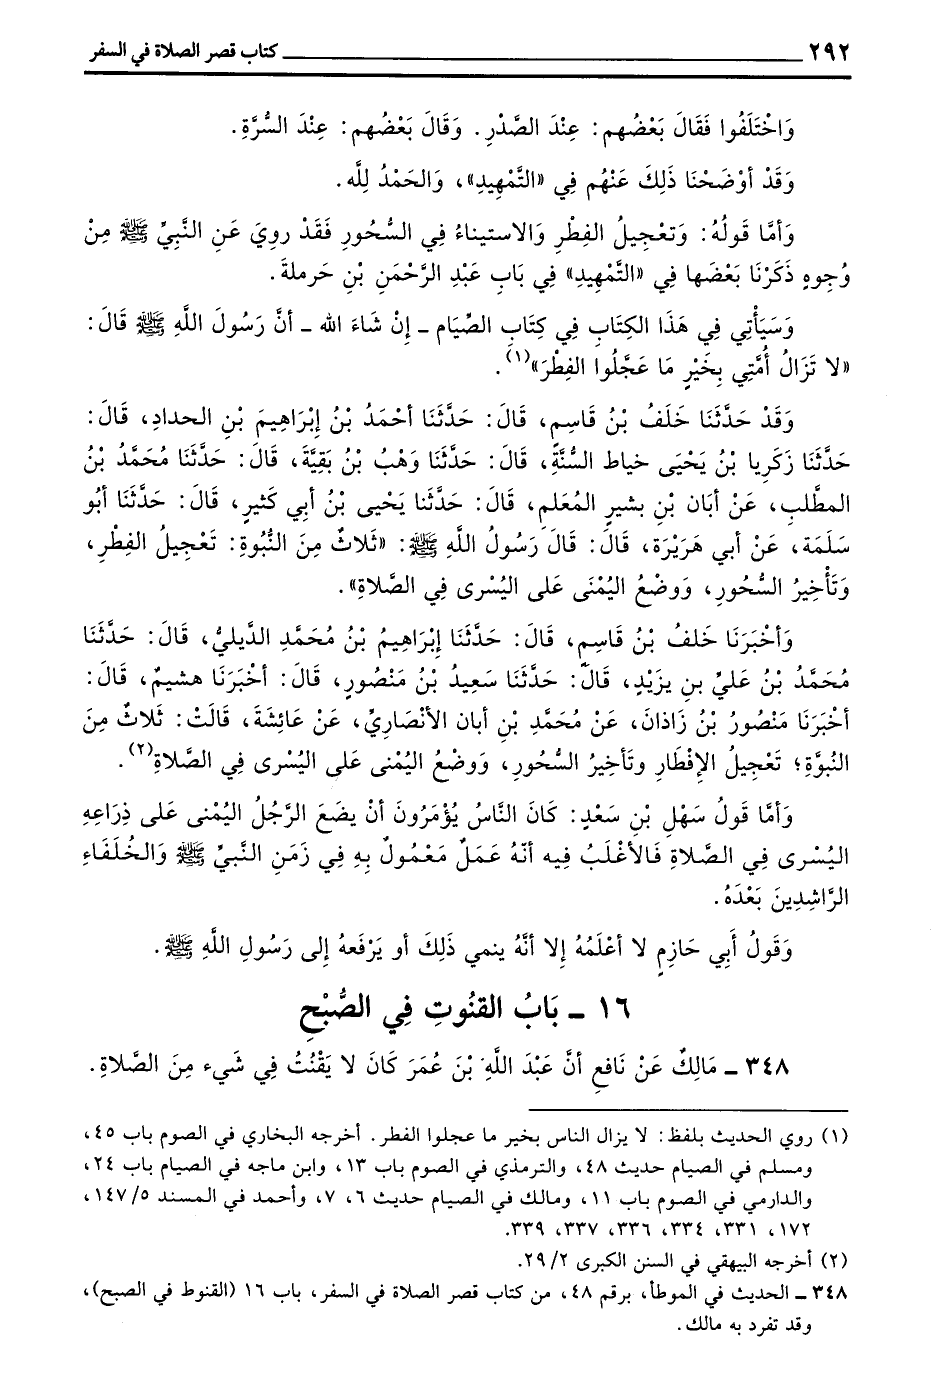 ٢٩٢ كتاب قصر الصلاة في السفر
وَاخْتَلَفُوا فَقَالَ بَعْضُهم: عِنْدَ الصَّدْرِ. وَقَالَ بَعْضُهم: عِنْدَ السُّرَّةِ.
وَقَدْ أَوْضَحْنَا ذَلِكَ عَنْهُم فِي «التَّمْهِيدِ»، وَالحَمْدُ لِلَّه.
وَأمَّا قَولُهُ: وَتَعْجِيلُ الفِطْرِ وَالاستيناءُ فِي السُّحُورِ فَقَدْ روِيَ عَنِ النَّبِيِّ ﷺ مِنْ
وُجوهٍ ذَكَرْنَا بَعْضَها فِي «التَّمْهِيدِ» فِي بَابِ عَبْدِ الرَّحْمَنِ بْنِ حَرملةَ.
وَسَيَأْتِي فِي هَذَا الكِتَابِ فِي كِتَابِ الصِّيَامِ ـ إِنْ شَاءَ الله ـ أنَّ رَسُولَ اللَّهِ ﷺ قَالَ:
«لا تَزَالُ أُمَّتِي بِخَيْرٍ مَا عَجَّلُوا الفِطْرَ»(١).
وَقَدْ حَدَّثَنَا خَلَفُ بْنُ قَاسِمٍ، قَالَ: حَدَّثَنَا أحْمَدُ بْنُ إِبْرَاهِيمَ بْنِ الحدادِ، قَالَ:
حَدَّثَنَا زَكَرِيا بْنُ يَحْيَى خياط السُّنَّةِ، قَالَ: حَدَّثَنَا وَهْبُ بْنُ بَقِيَّةَ، قَالَ: حَدَّثَنَا مُحَمَّدُ بْنُ
المطَّلبِ، عَنْ أبَان بْنِ بشيرٍ المُعَلمِ، قَالَ: حَدَّثَنا يَحْيى بْنُ أبي كَثيرٍ، قَالَ: حَدَّثَنا أبُو
سَلَمَة، عَنْ أبي هَرَيْرَة، قَالَ: قَالَ رَسُولُ اللَّهِ ﷺ: «ثَلاثٌ مِنَ النُّبُوةِ: تَعْجِيلُ الفِطْرِ،
وَتَأْخِيرُ السُّحُورِ، وَوضْعُ اليُمْنَى عَلى اليُسْرى فِي الصَّلاةِ».
وَأخْبَرَنَا خَلفُ بْنُ قَاسِمٍ، قَالَ: حَدَّثَنَا إبْرَاهِيمُ بْنُ مُحَمَّدٍ الدَّيليُّ، قَالَ: حَدَّثَنَا
مُحَمَّدُ بْنُ عَليِّ بنِ يزَيْدٍ، قَالَ: حَدَّثَنَا سَعِيدُ بْنُ مَنْصُورٍ، قَالَ: أخْبَرَنَا هشيمٌ، قَالَ:
أخْبَرَنَا مَنْصُورُ بْنُ زَاذانَ، عَنْ مُحَمَّدِ بْنِ أبان الأنْصَارِيِّ، عَنْ عَائِشَةَ، قَالَتْ: ثَلاثٌ مِنَ
النبوَّةِ؛ تَعْجِيلُ الإفْطَارِ وتَأخِيرُ السُّحُورِ، وَوضْعُ اليُمْنى عَلى اليُسْرى فِي الصَّلاةِ(٢).
وَأمَّا قَولُ سَهْلِ بْنِ سَعْدٍ: كَانَ النَّاسُ يُؤْمَرُونَ أنْ يضَعَ الرَّجُلُ اليُمْنى عَلى ذِرَاعِهِ
اليُسْرى فِي الصَّلاةِ فَالأغْلَبُ فيه أنَّهُ عَمَلٌ مَعْمُولٌ بِهِ فِي زَمَنِ النَّبيِّ ﷺ وَالخُلَفَاءِ
الرَّاشِدِينَ بَعْدَهُ.
وَقَولُ أَبِي حَازِمٍ لا أعْلَمُهُ إِلا أنَّهُ ينمي ذَلِكَ أو يَرْفَعهُ إلى رَسُولِ اللَّهِ ﷺ.
١٦ ـ بَابُ القنُوتِ فِي الصُّبْحِ
٣٤٨ ـ مَالِكٌ عَنْ نَافعٍ أنَّ عَبْدَ اللَّهِ بْنَ عُمَرَ كَانَ لا يَقْنُتُ فِي شَيء مِنَ الصَّلاةِ.
(١) روي الحديث بلفظ: لا يزال الناس بخير ما عجلوا الفطر. أخرجه البخاري في الصوم باب ٤٥،
ومسلم في الصيام حديث ٤٨، والترمذي في الصوم باب ١٣، وابن ماجه في الصيام باب ٢٤،
والدارمي في الصوم باب ١١، ومالك في الصيام حديث ٦، ٧، وأحمد في المسند ١٤٧/٥،
١٧٢، ٣٣١، ٣٣٤، ٣٣٦، ٣٣٧، ٣٣٩.
(٢) أخرجه البيهقي في السنن الكبرى ٢٩/٢.
٣٤٨ ـ الحديث في الموطأ، برقم ٤٨، من كتاب قصر الصلاة في السفر، باب ١٦ (القنوط في الصبح)،
وقد تفرد به مالك.